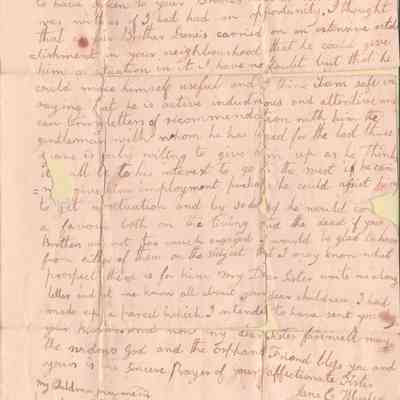 to have given to your
was with as if I had had an opportunity, I thought
that if your Brother Lewis carried on an extensive estab
-lishment in your neighbourhood that he could give
him a situation in it I have no doubt but that he
could make himself useful and I think I am safe in
saying that he is active industrious and attentive and
can bring letters of recommendation with him the
gentleman with whom he has lived for the last three
years is only willing to give him up as he thinks
it will be to his interest to go to the west if he can
give him employment perhaps he could assist him
to get a situation and by so doing he would con
a favour both on the living and the dead if your
Brothers are not too much engaged I would be glad to hear
from either of them on the subject that I may know what
prospect there is for him My Dear Sister write me a long
letter and let me know all about your dear children I had
made up a parcel which I intended to have sent you
your Husband and now my dear Sister farewell may
the widows God and the Orphans Friend bless you and
yours is the sincere prayer of your affectionate Sister
my Children join me in
Jane C